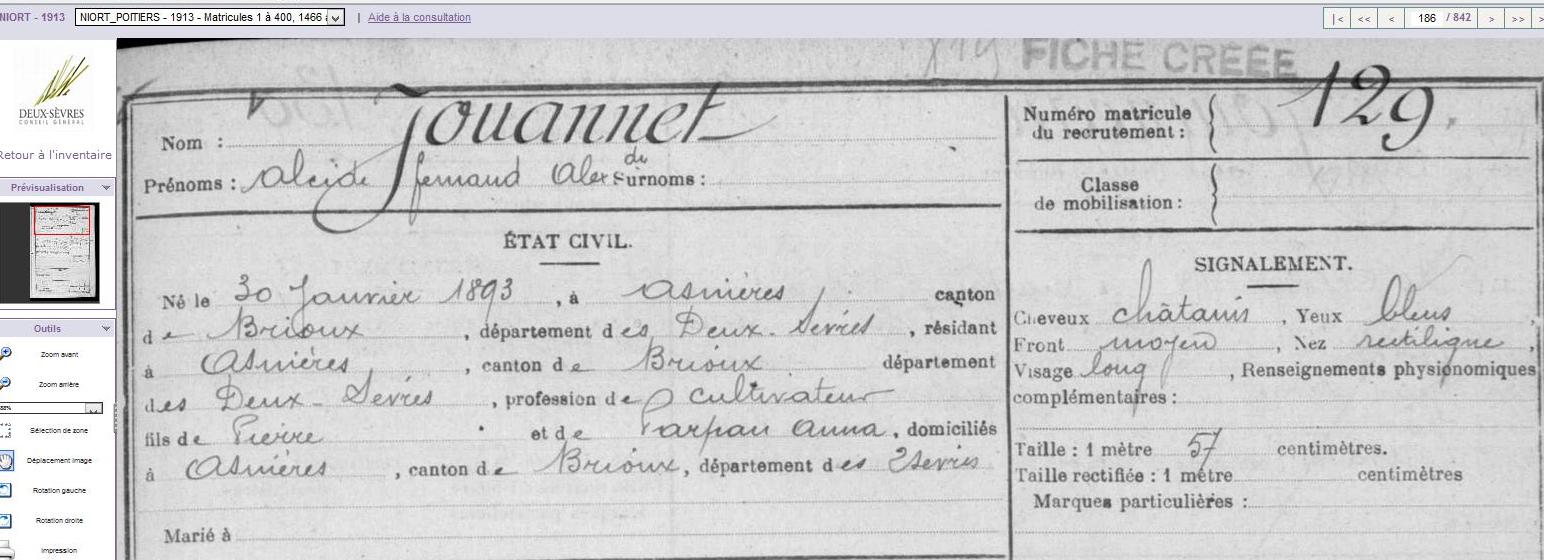 NIORT - 1913
NIORT_POITIERS - 1913 - Matricules 1 à 400, 1466
| Aide à la consultation
|< << < 186 / 842 > >>
DEUX-SÈVRES
CONSEIL GÉNÉRAL
Retour à l'inventaire
Prévisualisation
Outils
Zoom avant
Zoom arrière
Sélection de zone
Déplacement image
Rotation gauche
Rotation droite
Impression
FICHE CRÉÉE
Nom : Jouannet
Prénoms : Alcide Fernand Surnoms :
Numéro matricule du recrutement : 129.
Classe de mobilisation :
ÉTAT CIVIL.
Né le 30 Janvier 1893, à Asnières, canton
de Brioux, département des Deux-Sèvres, résidant
à Asnières, canton de Brioux département
des Deux-Sèvres, profession de cultivateur
fils de Pierre et de Parpau Anna, domiciliés
à Asnières, canton de Brioux, département des 2 Sèvres
Marié à
SIGNALEMENT.
Cheveux châtains, Yeux bleus,
Front moyen, Nez rectiligne,
Visage long, Renseignements physionomiques
complémentaires :
Taille : 1 mètre 57 centimètres.
Taille rectifiée : 1 mètre centimètres
Marques particulières :